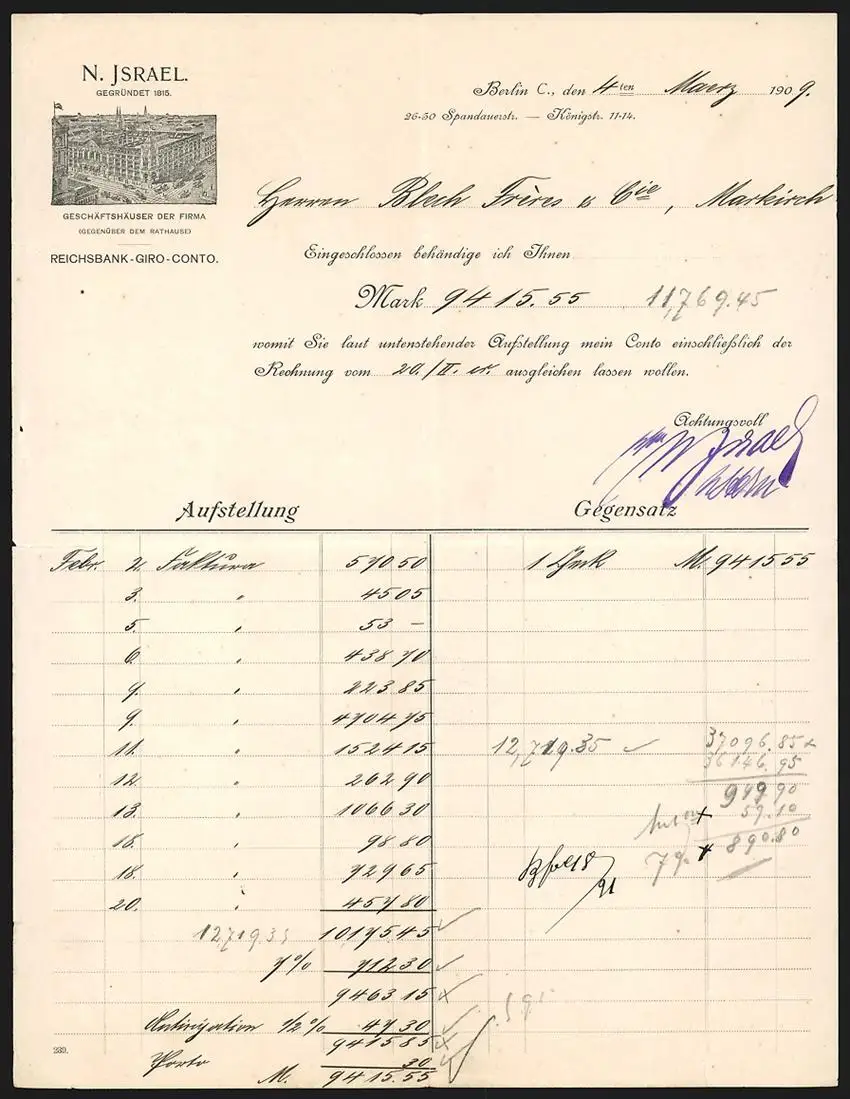 N. JSRAEL.
GEGRÜNDET 1815.
GESCHÄFTSHÄUSER DER FIRMA
(GEGENÜBER DEM RATHAUSE)
REICHSBANK-GIRO-CONTO.
Berlin C., den 4ten Maerz 1909.
26-30 Spandauerstr. — Königstr. 11-14.
Herren Blech Frères & Cie, Markirch
Eingeschlossen behändige ich Ihnen
Mark 9415.55 11,769.45
womit Sie laut untenstehender Aufstellung mein Conto einschließlich der
Rechnung vom 20./II. cr. ausgleichen lassen wollen.
Achtungsvoll
ppa N. Jsrael
Aufstellung Gegensatz
Febr. 2. Faktura 570 50 1 Check M. 9415 55
3. " 45 05
5. " 53 –
6. " 438 70
7. " 223 85
9. " 4704 75
11. " 1524 15 12,719.35 37096.85
36146.95
12. " 262 90 949 90
13. " 1066 30 59.10
15. " 98 80 7% 890.80
18. " 729 65
20. " 457 80
12,719.35 10175 45
7% 712 30
9463 15
1/2% 47 30
9415 85
Porto 30
M. 9415.55
239.